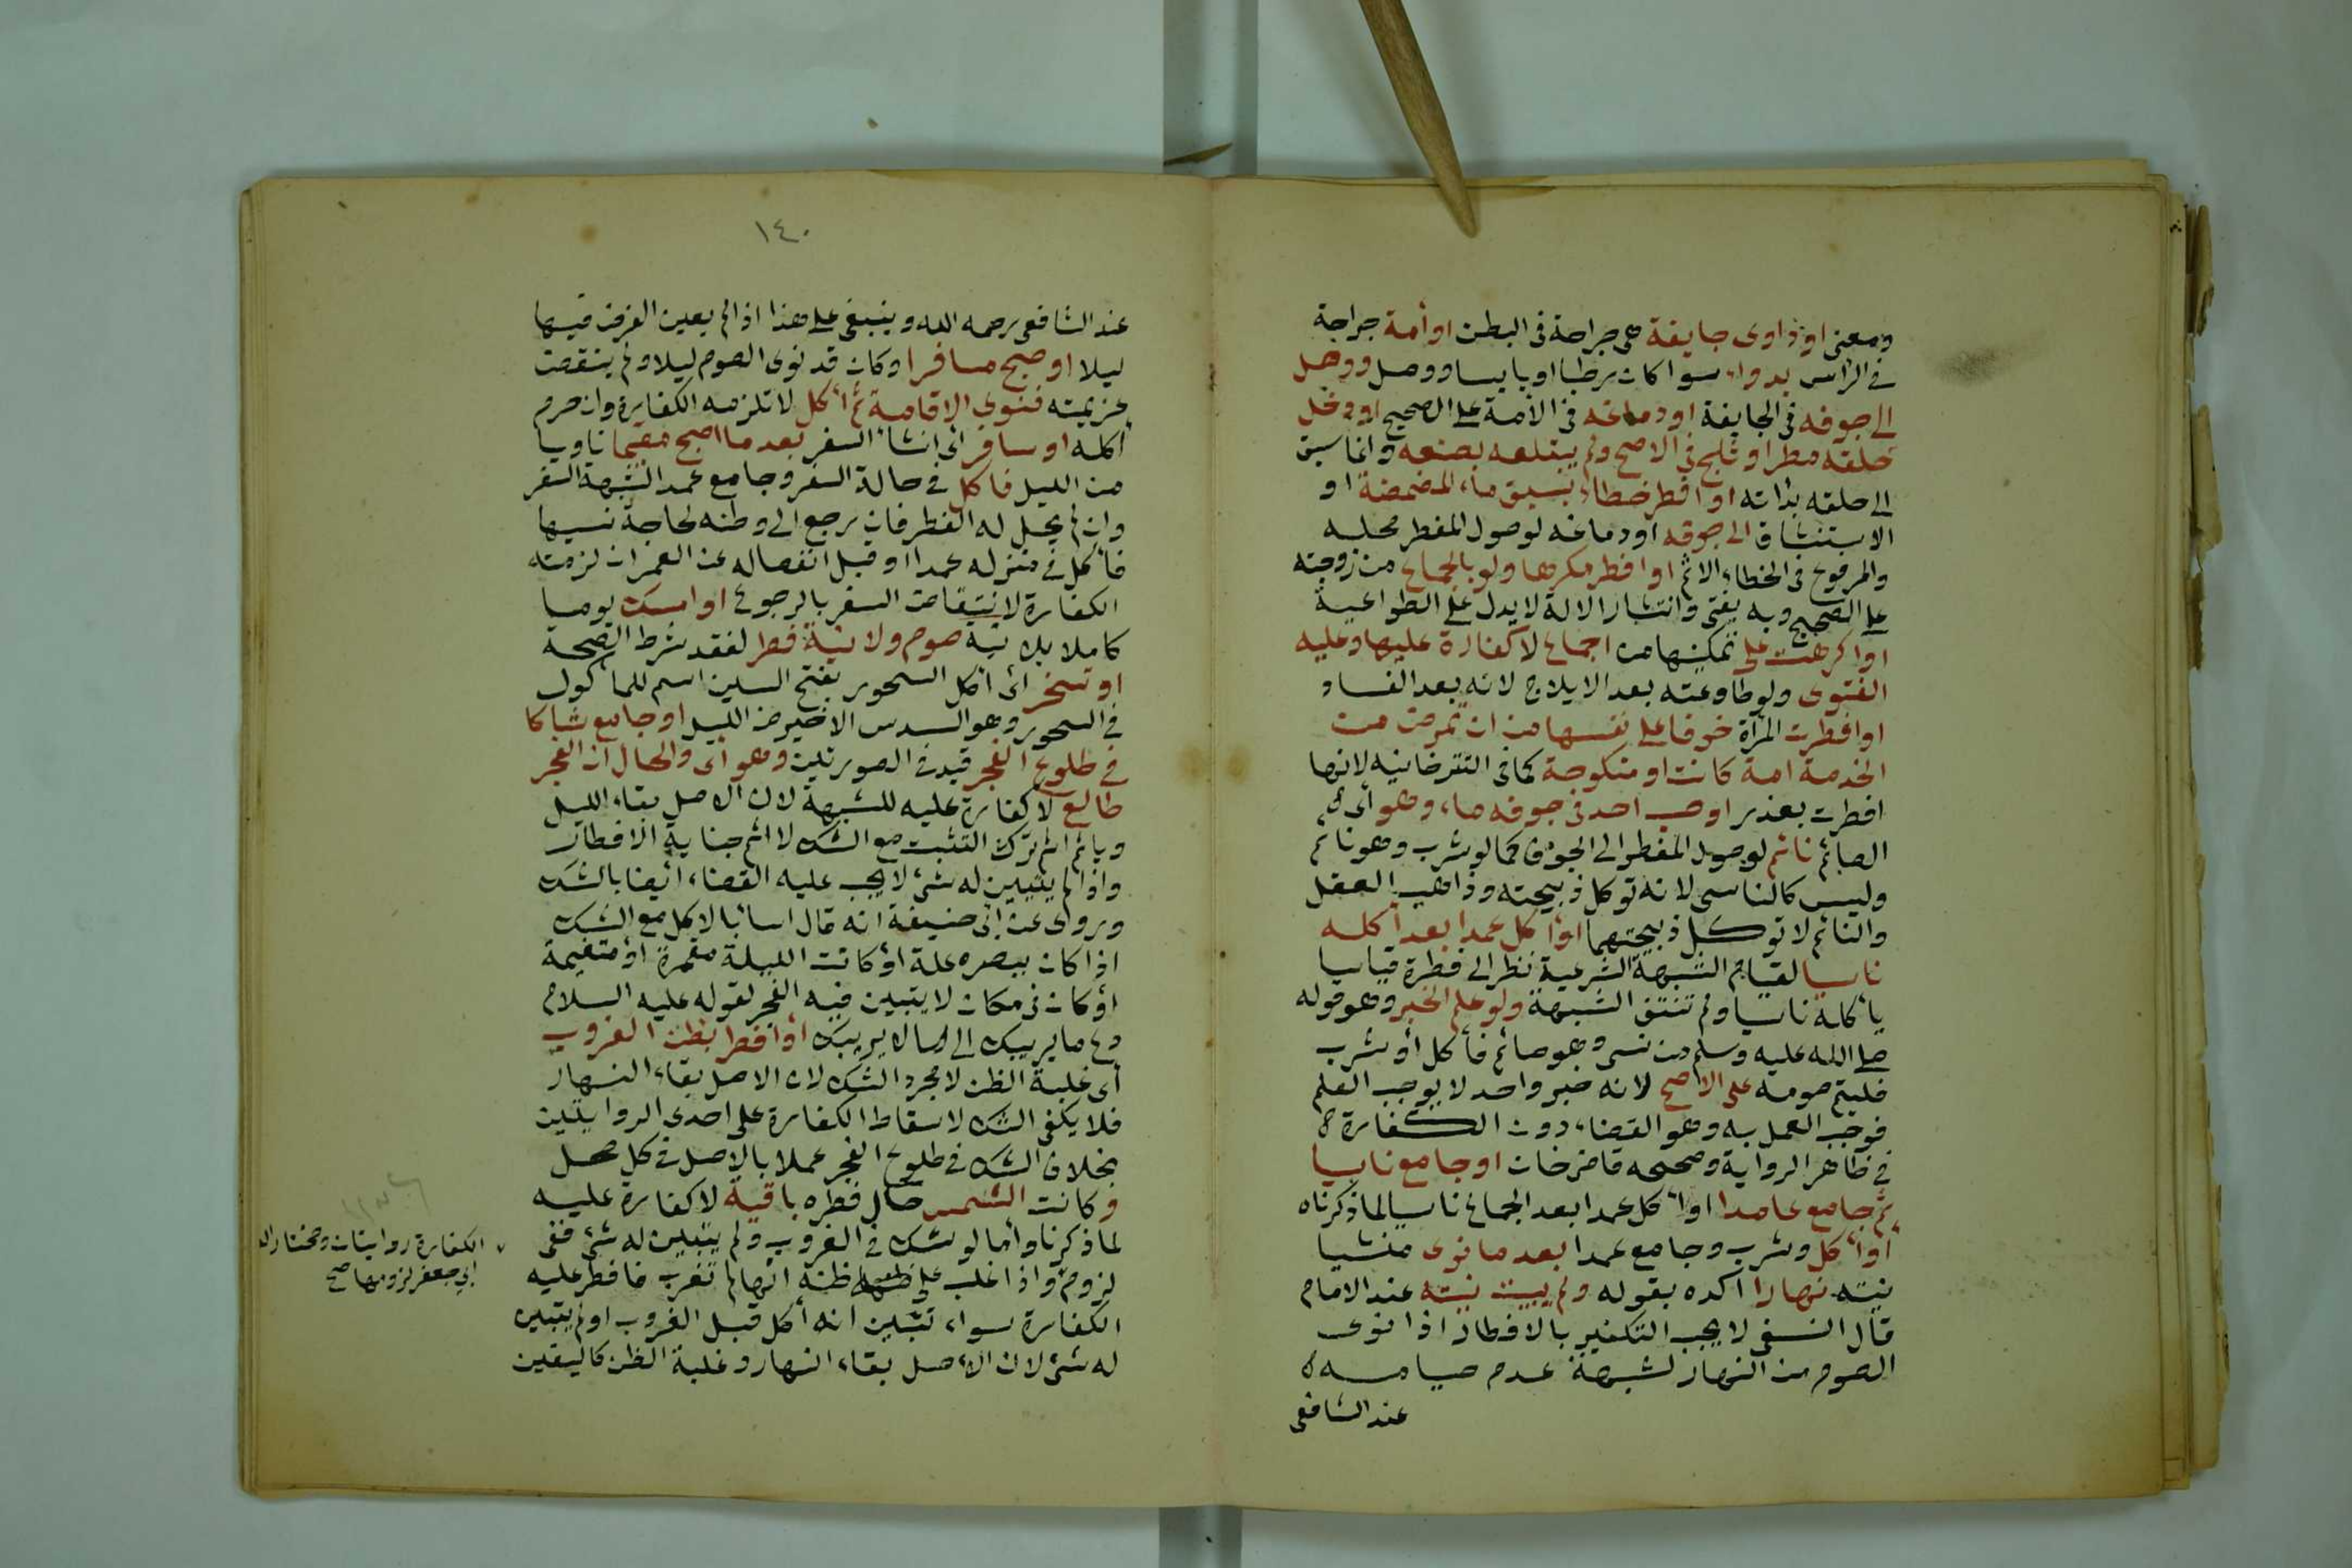 ومعنى او داوى جايفة هى جراحة فى البطن او أمة جراحة
فى الرأس بدواء سواكان رطبا او يابسا ووصل ووصل
الى جوفه فى الجايفة او دماغه فى الآمة على الصحيح او دخل
حلقه مطر او ثلج فى الاصح ولم يبتلعه بصنعه وانما سبق
الى حلقه بذاته او افطر خطاء بسبق ماء المضمضة او
الاستنشاق الى جوفه او دماغه لوصول المفطر محله
والمرفوع فى الخطاء الاثم او افطر مكرها ولو بالجماع من زوجته
على الصحيح وبه يفتى وانتشار الالة لا يدل على الطواعية
او اكرهت على تمكينها من اجماع لا كفارة عليها وعليه
الفتوى ولو طاوعته بعد الايلاج لانه بعد الفساد
او افطرت المرأة خوفا على نفسها من ان تمرض من
الخدمة امة كانت او منكوحة كما فى التترخانيه لانها
افطرت بعذر او صب احد فى جوفه ماء وهو أى
الصائم نائم لوصول المفطر الى الجوف كما لو شرب وهو نائم
وليس كالناسى لانه توكل ذبيحته وذاهب العقل
والنائم لا توكل ذبيحتهما او أكل عمدا بعد أكله
ناسيا لقيام الشبهة الشرعية نظرا لى فطرة قياسا
يأكله ناسيا ولم تنتف الشبهة ولو علم الخبر وهو قوله
صلى الله عليه وسلم من نسى وهو صائم فأكل أو شرب
فليتم صومه على الاصح لانه خبر واحد لا يوجب العلم
فوجب العمل به وهو القضاء دون الكفارة
فى ظاهر الرواية وصححه قاضيخان او جامع ناسيا
ثم جامع عامدا او أكل عمدا بعد الجماع ناسيا لما ذكرناه
أو أكل وشرب وجامع عمدا بعد ما نوى منشيا
نيته نهارا اكده بقوله ولم يبيت نيته عند الامام
قال النسفى لا يجب التكفير بالافطار اذا نوى
الصوم من النهار لشبهة عدم صيامه
عند الشافعى
١٤٠
عند الشافعى رحمه الله وينبغى على هذا اذا لم يعين الفرض فيها
ليلا او صبح مسافرا وكان قد نوى الصوم ليلا ولم ينقض
عزيمته فنوى الاقامة ثم أكل لا تلزمه الكفارة وان حرم
اكله او سافر اى انشاء السفر بعد ما اصبح مقيما ناويا
من الليل فاكل فى حالة السفر وجامع عمدا لشبهة السفر
وان لم يحل له الفطر فان رجع الى وطنه لحاجة نسيها
فأكل فى منزله عمدا او قبل انفصاله عن العمران لزمته
الكفارة لانتقاض السفر بالرجوع او امسك يوما
كاملا بلا نية صوم ولا نية فطر لفقد شرط الصحة
او تسحر اى اكل السحور بفتح السين اسم للمأكول
فى السحور وهو السدس الاخير من الليل او جامع شاكا
فى طلوع الفجر قيد فى الصورتين وهو أى والحال ان الفجر
طالع لا كفارة عليه للشبهة لان الاصل بقاء الليل
وياثم اثم ترك التثبت مع الشك لا اثم جناية الافطار
واذا لم يتبين له شئ لا يجب عليه القضاء أيضا بالشك
وروى عن ابى حنيفة انه قال اساء بالاكل مع الشك
اذا كان ببصره علة او كانت الليلة مقمرة او متغيمة
أو كان فى مكان لا يتبين فيه الفجر لقوله عليه السلام
دع ما يريبك الى ما لا يريبك أو افطر بظن الغروب
أى غلبة الظن لا مجرد الشك لان الاصل بقاء النهار
فلا يكفى الشك لاسقاط الكفارة على احدى الروايتين
بخلاف الشك فى طلوع الفجر عملا بالاصل فى كل محل
وكانت الشمس حال فطره باقية لا كفارة عليه
لما ذكرنا وأما لو شك فى الغروب ولم يتبين له شئ ففى
لزوم واذا غلب على ظنه انها لم تغرب فافطر عليه
الكفارة سواء تبين انه أكل قبل الغروب او لم يتبين
له شئ لان الأصل بقاء النهار وغلبة الظن كاليقين
الكفارة روايتان ومختار ال
ابي جعفر لزومها صح